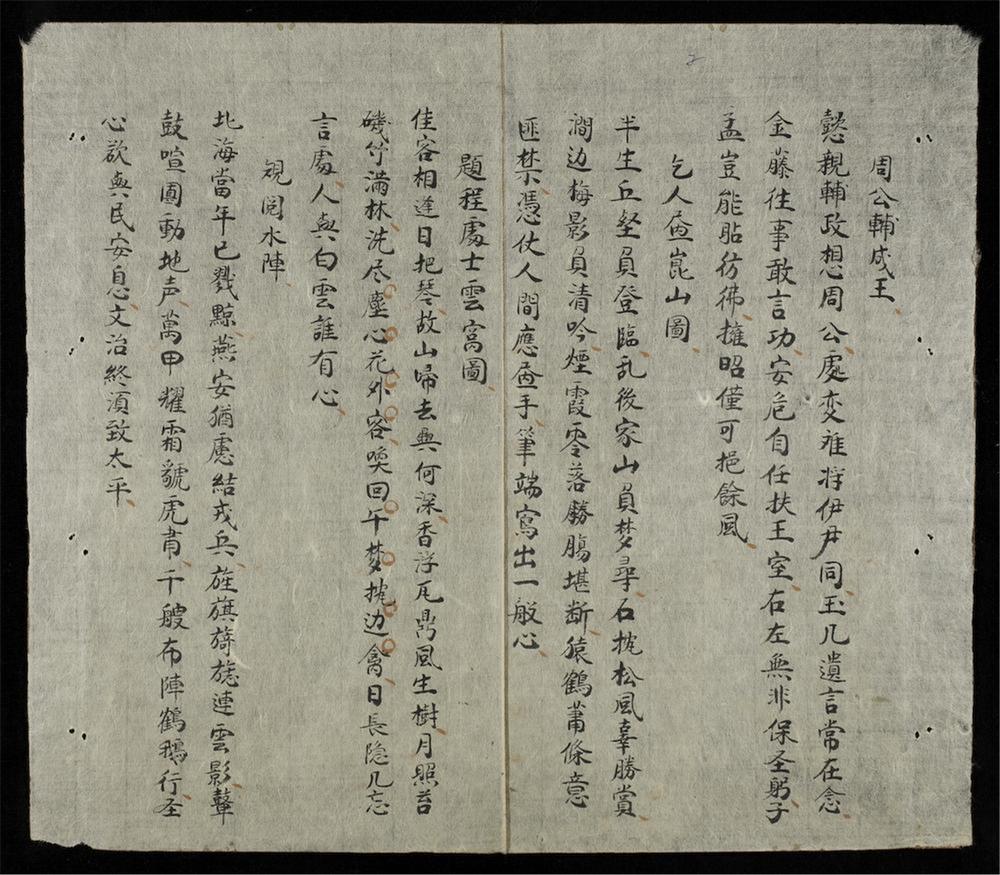 周公輔成王
懿親輔政想周公處变难将伊尹同玉几遺言常在念
金藤往事敢言功安危自任扶王室右左無非保圣躬子
孟豈能貼彷彿擁昭僅可挹餘風
乞人畫崑山圖
半生丘壑負登臨乱後家山負梦尋石枕松風辜勝賞
澗边梅影負清吟煙霞零落勝腸堪断猿鶴萧條意
匪禁憑仗人間應畫手筆端寫出一般心
題程處士雲窩圖
佳客相逢日把琴故山帰去興何深香浮瓦鼎風生樹月照苔
磯竹满林洗尽塵心花外客喚回午梦枕边禽日長隐几忘
言處人與白雲誰有心
視閲水陣
北海當年已戮鯨燕安猶慮結戎兵旌旗旖旎連雲影鼙
鼓喧闐動地声萬甲耀霜貔虎肅千艘布陣鶴鵝行圣
心欲與民安息文治終須致太平